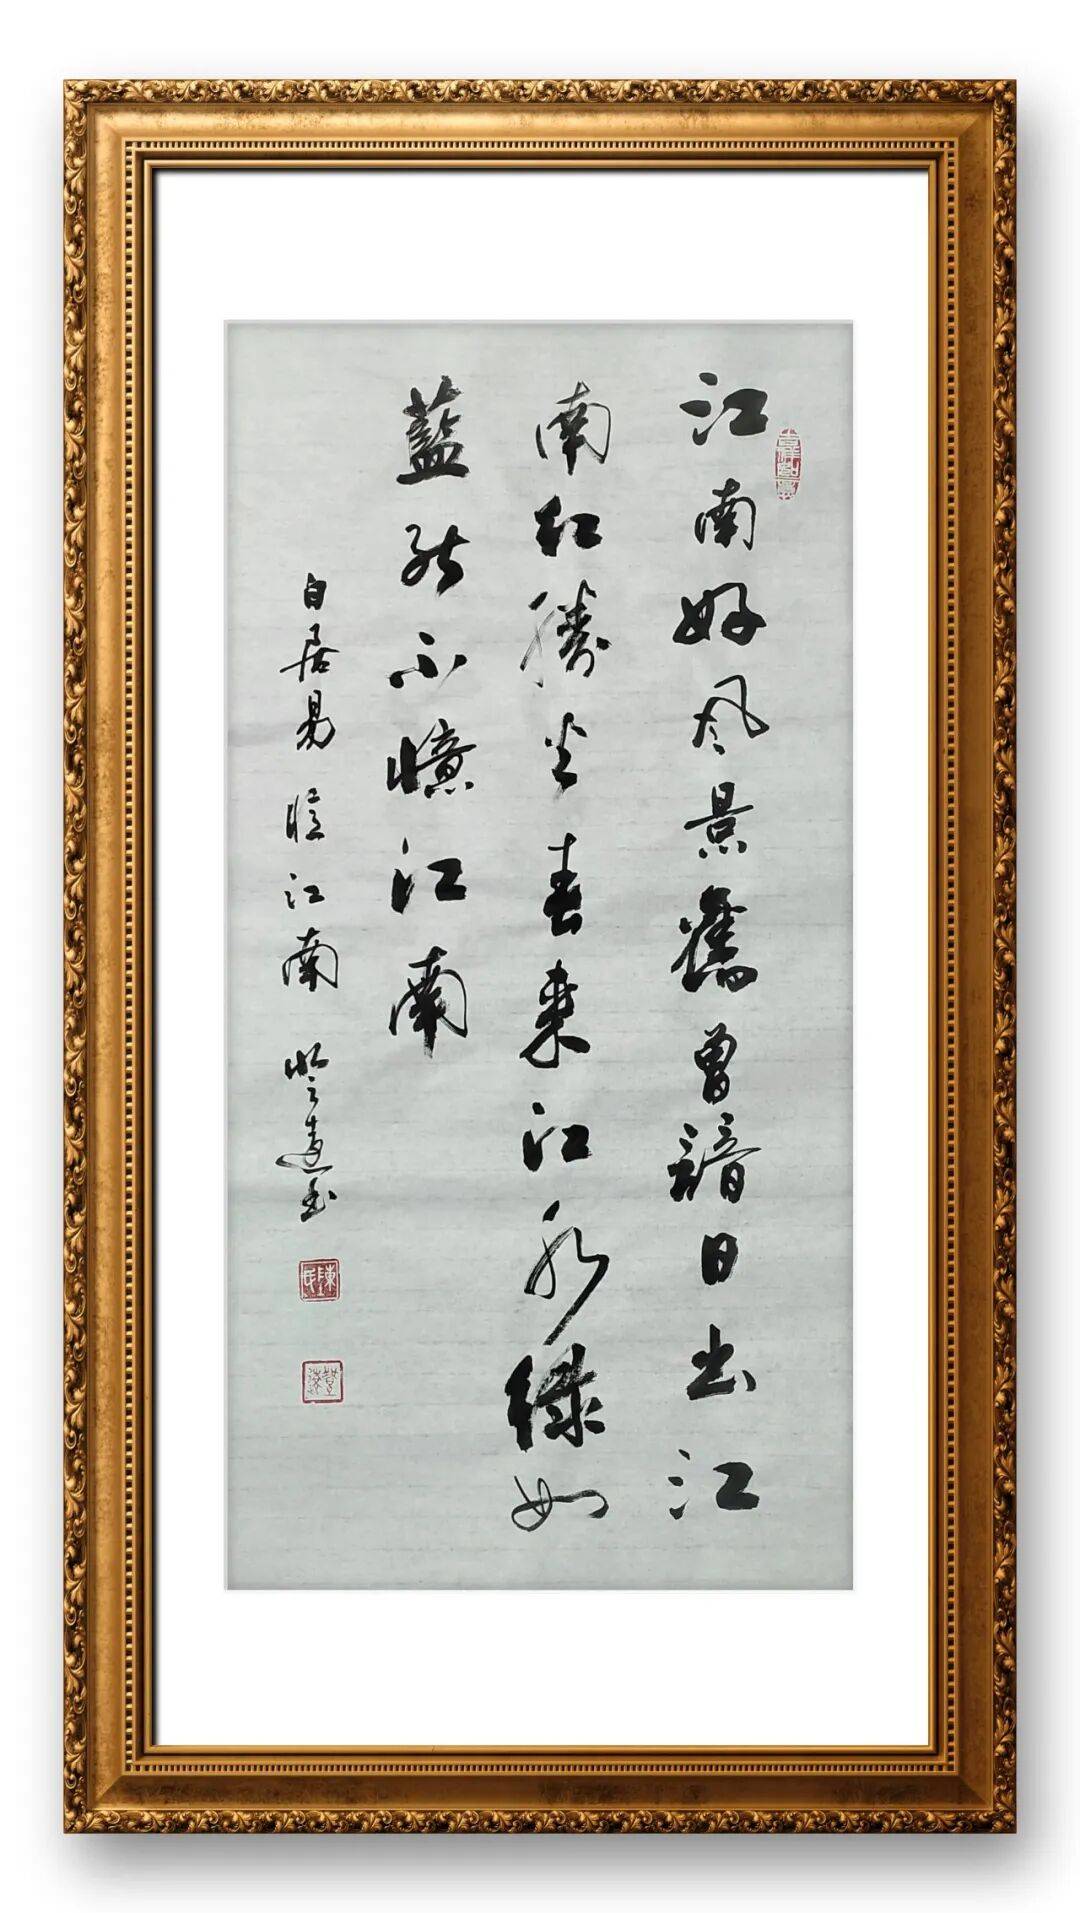 江南好风景舊曾諳日出江
南紅勝火春来江水綠如
藍能不憶江南
白居易憶江南 书